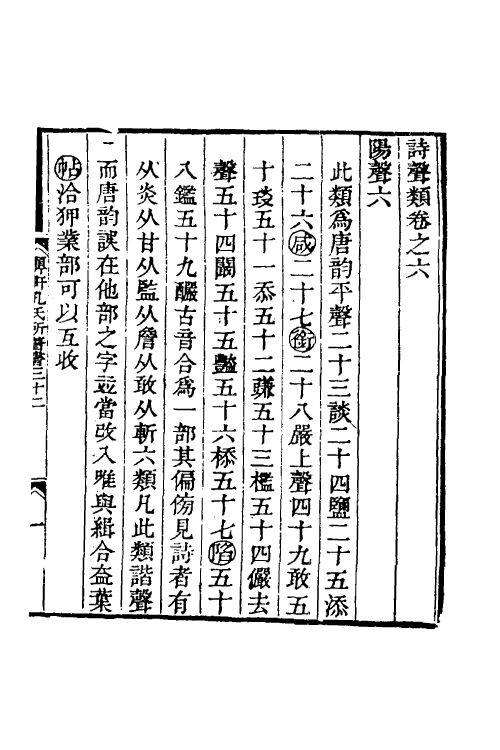 詩聲類卷之六
陽聲六
此類爲唐韵平聲二十三談二十四鹽二十五添
二十六咸二十七銜二十八嚴上聲四十九敢五
十琰五十一忝五十二豏五十三檻五十四儼去
聲五十四闞五十五豔五十六㮇五十七陷五十
八鑑五十九釅古音合爲一部其偏㑄見詩者有
从炎从甘从監从詹从敢从斬六類凡此類諧聲
而唐韵誤在他部之字竝當改入唯與緝合盍葉
帖洽狎業部可以互收
顨軒孔氏所著書三十二
一